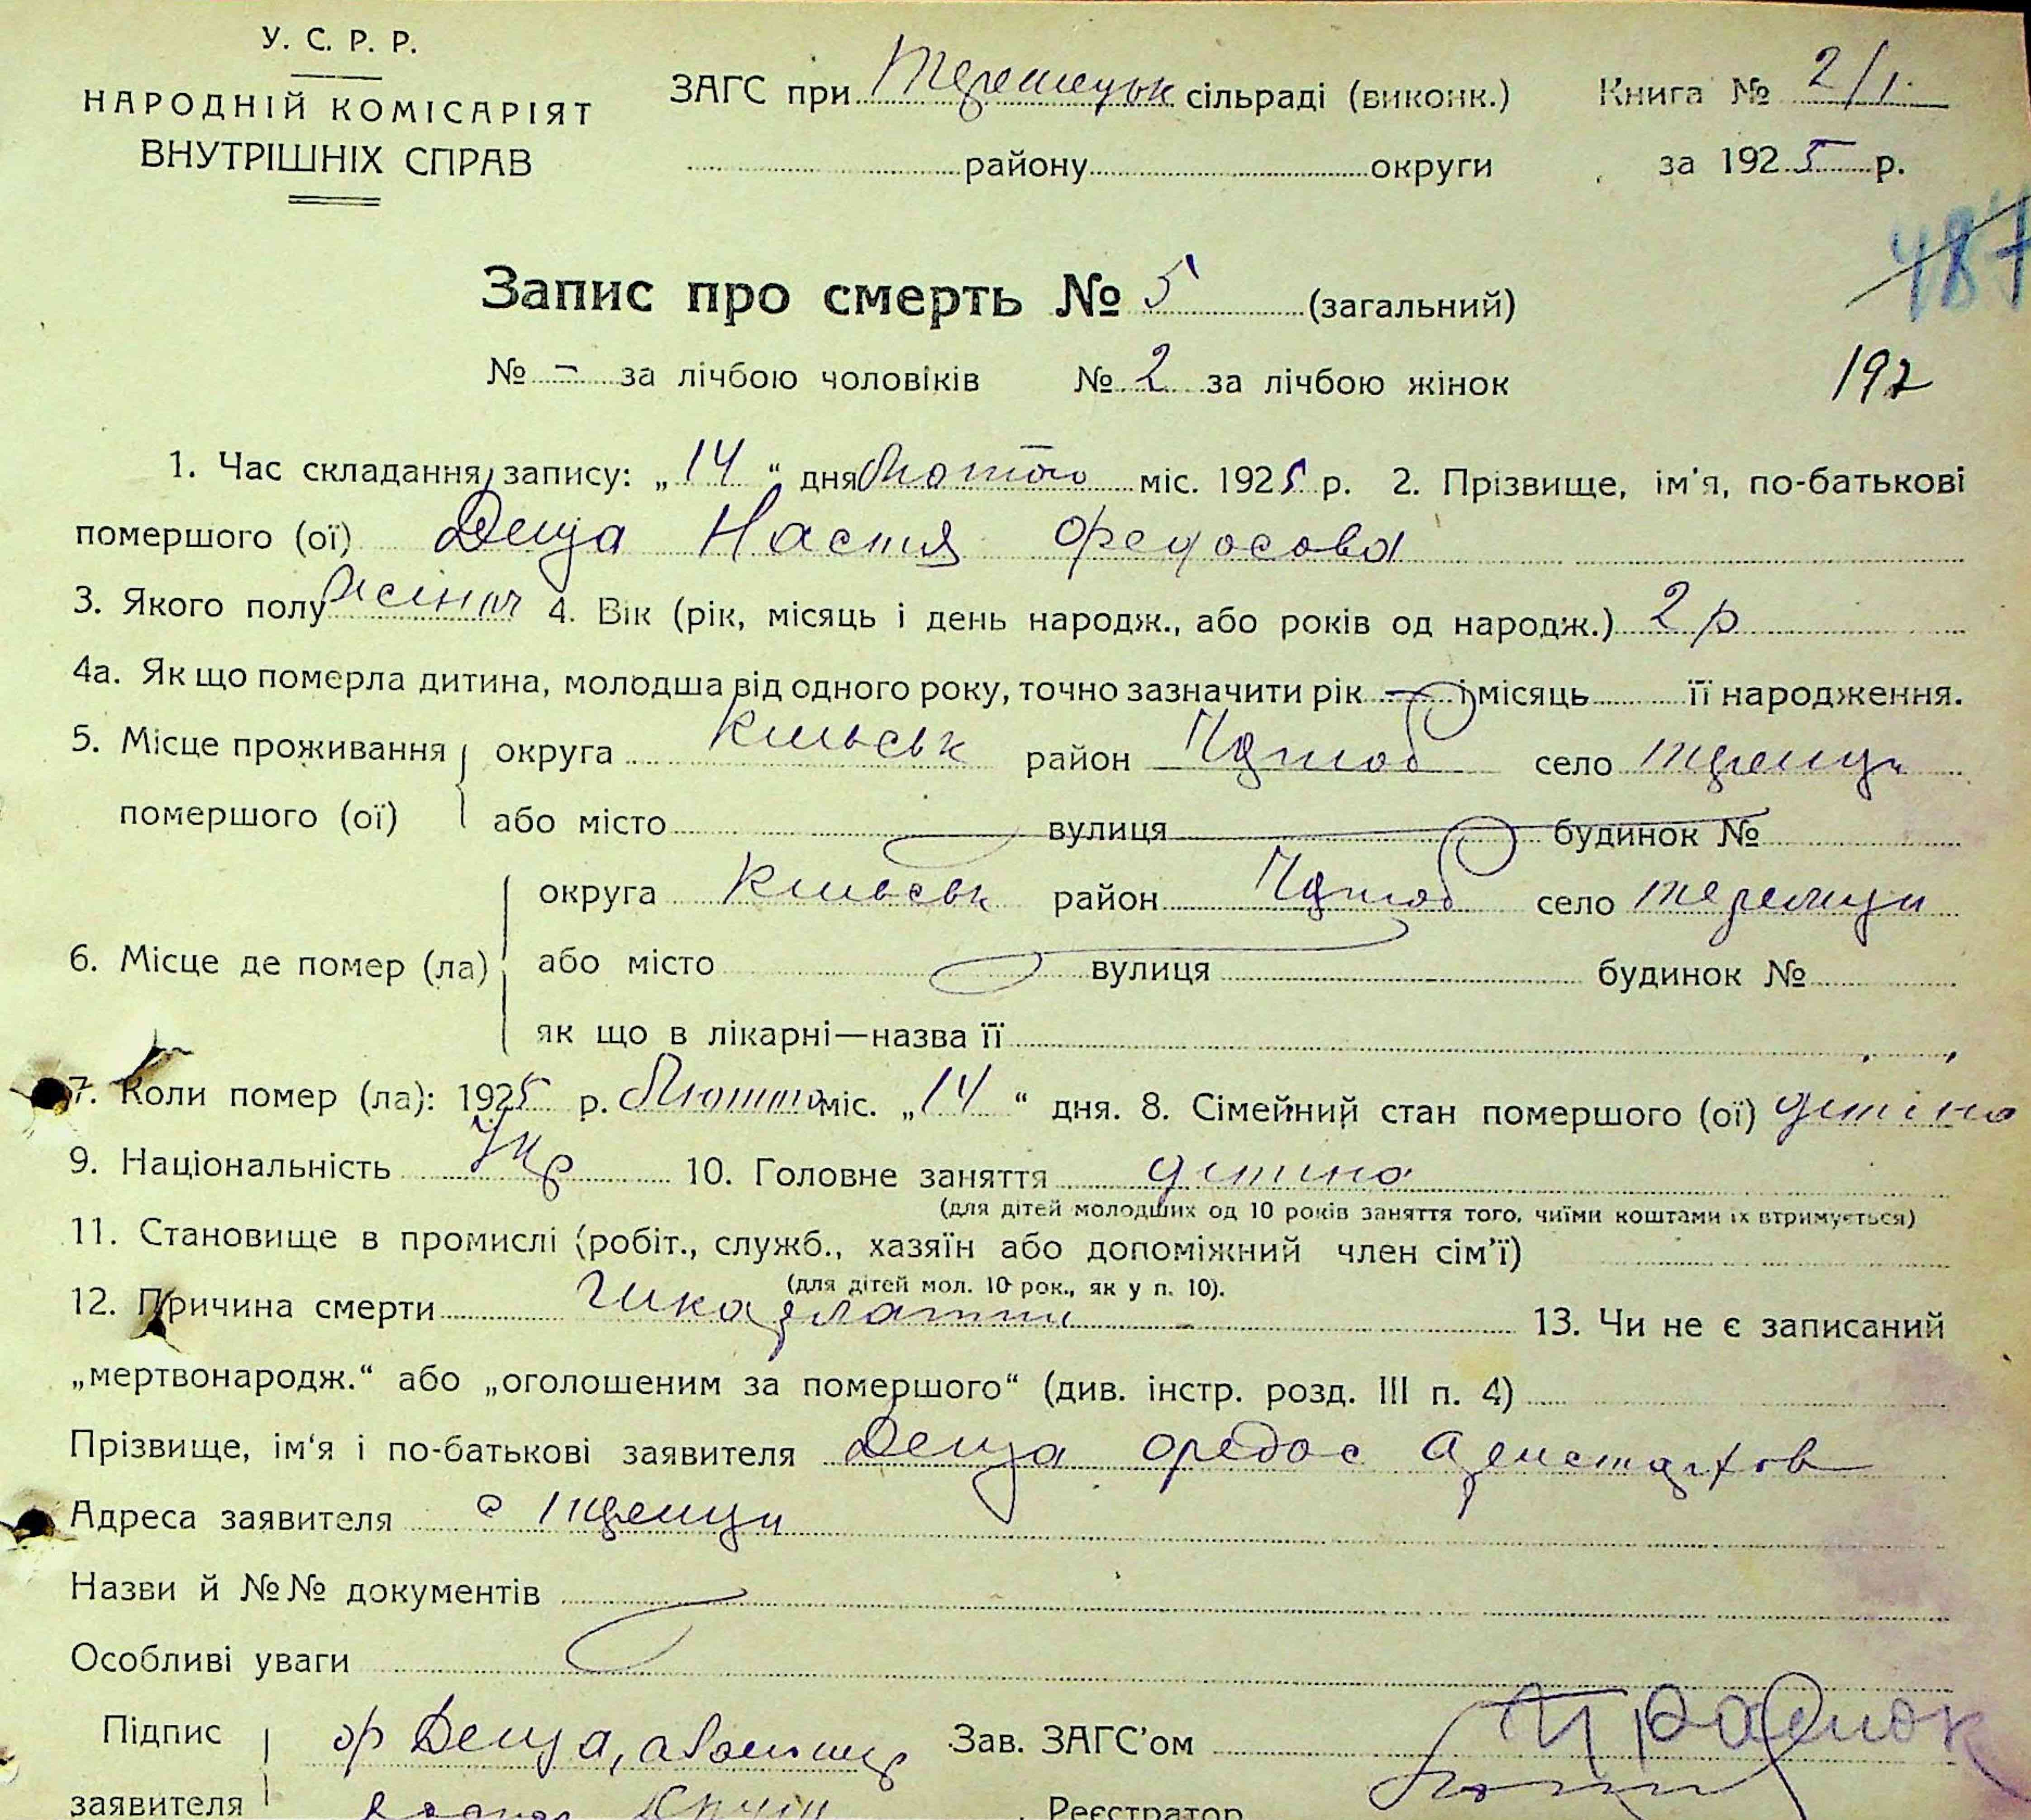 У. С. Р. Р.
НАРОДНІЙ КОМІСАРІЯТ
ВНУТРІШНІХ СПРАВ
ЗАГС при сільраді (виконк.)
району округи
Книга № 2/1
за 1925 р.
487
Запис про смерть № 5 (загальний)
№ - за лічбою чоловіків № 2 за лічбою жінок
192
1. Час складання запису: „14“ дня лютого міс. 1925 р. 2. Прізвище, ім'я, по-батькові
помершого (ої) Деща Настя Федосова
3. Якого полу жіноч 4. Вік (рік, місяць і день народж., або років од народж.) 2 р
4а. Як що померла дитина, молодша від одного року, точно зазначити рік — і місяць її народження.
5. Місце проживання помершого (ої) округа Київськ район село
або місто вулиця будинок №
6. Місце де помер (ла) округа Київськ район село
або місто вулиця будинок №
як що в лікарні—назва її
7. Коли помер (ла): 1925 р. Лютого міс. „14“ дня. 8. Сімейний стан помершого (ої) дитина
9. Національність Укр 10. Головне заняття дитина
(для дітей молодших од 10 років заняття того, чиїми коштами їх втримується)
11. Становище в промислі (робіт., служб., хазяїн або допоміжний член сім'ї)
(для дітей мол. 10 рок., як у п. 10).
12. Причина смерти 13. Чи не є записаний
„мертвонародж.“ або „оголошеним за помершого“ (див. інстр. розд. III п. 4)
Прізвище, ім'я і по-батькові заявителя Деща Федос
Адреса заявителя с
Назви й №№ документів
Особливі уваги
Підпис заявителя Ф Деща, а Зав. ЗАГС'ом
Реєстратор